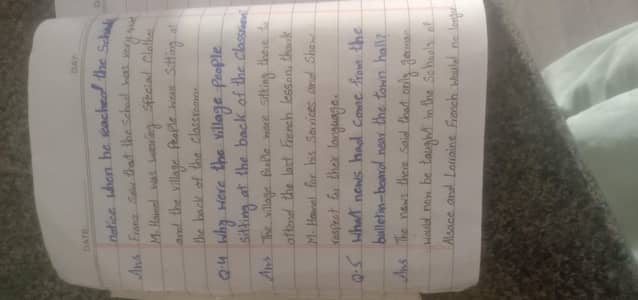 DATE
DAY
notice when he reached the School
Ans Franz saw that the school was very
M. Hamel was wearing special clothes
and the village people were sitting at
the back of the classroom.
Q4 Why were the village people
sitting at the back of the classroom
Ans The village people were sitting there to
attend the last French lesson, thank
M. Hamel for his services and show
respect for their language.
Q.5 What news had come from the
bulletin-board near the town hall?
Ans The news there said that only german
would now be taught in the schools of
Alsace and Lorraine French would no longer